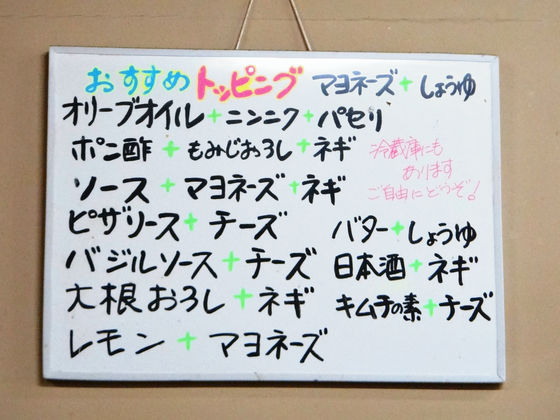 おすすめトッピング マヨネーズ+しょうゆ
オリーブオイル+ニンニク+パセリ
ポン酢+もみじおろし+ネギ
ソース+マヨネーズ+ネギ
ピザソース+チーズ
バジルソース+チーズ
大根おろし+ネギ
レモン+マヨネーズ
冷蔵庫にも
あります
ご自由にどうぞ!
バター+しょうゆ
日本酒+ネギ
キムチの素+チーズ